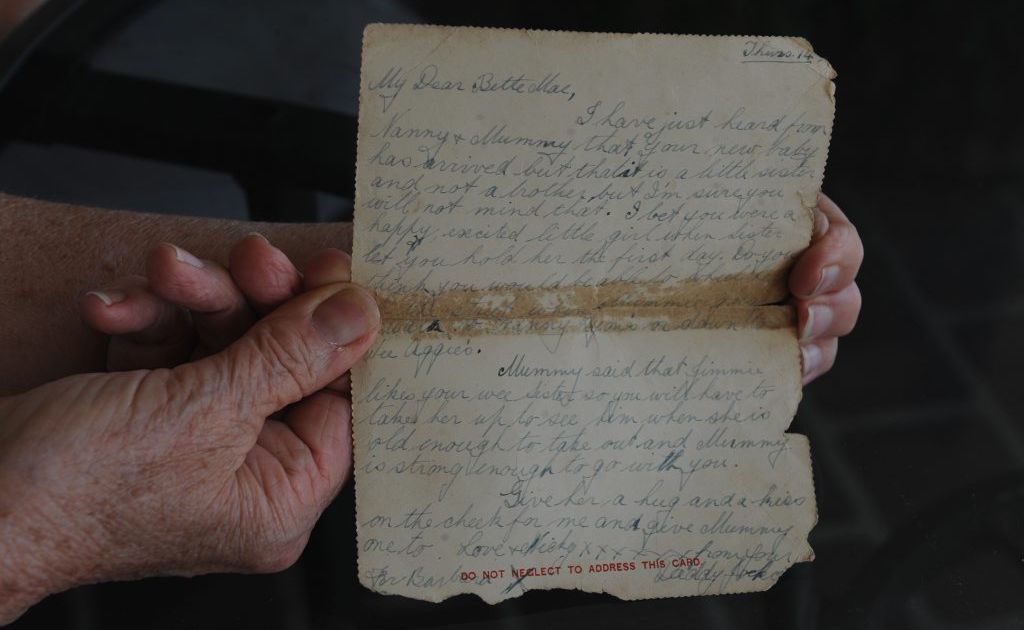 Thurs. 14
My Dear Bette Mae,
I have just heard from
Nanny & Mummy that your new baby
has arrived but that it is a little sister
and not a brother but I'm sure you
will not mind that. I bet you were a
happy, excited little girl when Sister
let you hold her the first day. Do you
think you would be able to
Nanny or down to
Wee Aggie's.
Mummy said that Jimmie
likes your wee sister so you will have to
take her up to see him when she is
old enough to take out and Mummy
is strong enough to go with you.
Give her a hug and a kiss
on the cheek for me and give Mummy
one to. Love & xxxxxxxx from your
For Barbara
Daddy
DO NOT NEGLECT TO ADDRESS THIS CARD